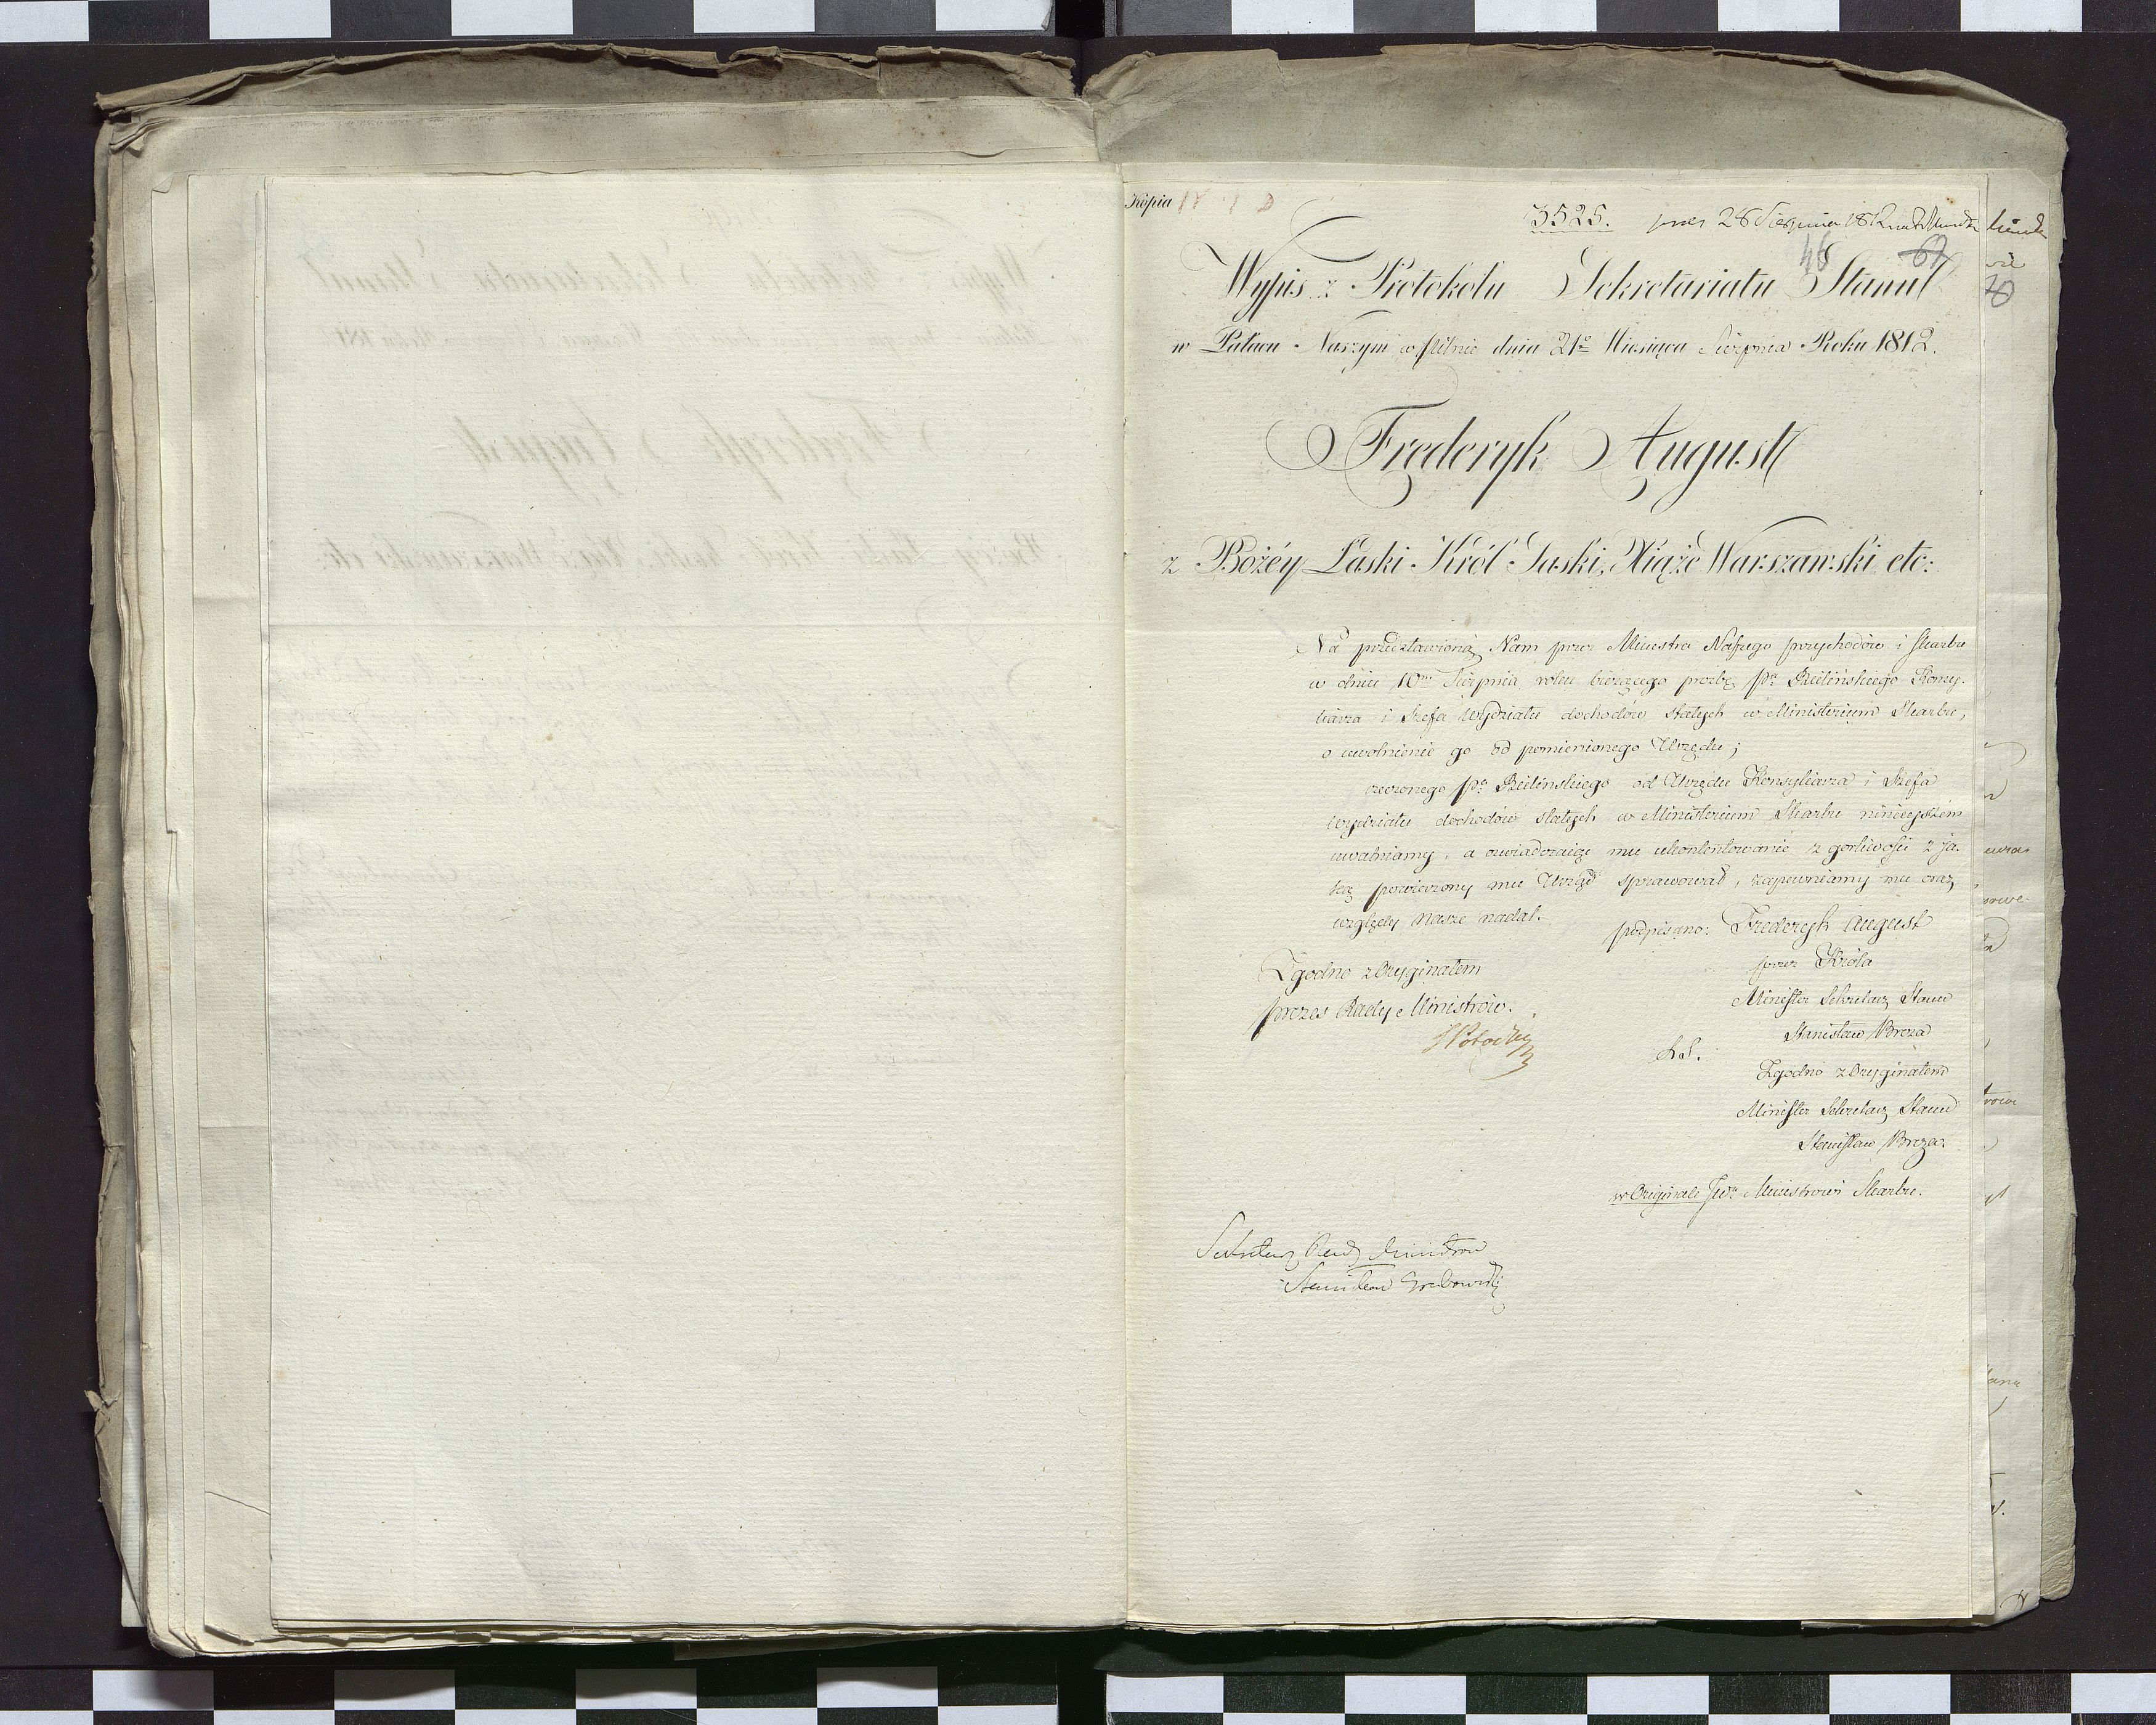 Kópia
3525. prez 28 Sierpnia 1812
46 67
Wypis z Protokołu Sekretariatu Stanu
w Pałacu Naszym w Pilnic dnia 21º Miesiąca Sierpnia Roku 1812.
Frederyk August
z Bożéy Łaski Król Saski, Xiąże Warszawski etc:
Na przedstawioną Nam przez Ministra Naszego przychodów i Skarbu
w dniu 10m Sierpnia roku bieżącego prozbę Pa Bielińskiego Konsy-
liarza i Szefa Wydziału dochodów stałych w Ministerium Skarbu,
o uwolnienie go od pomienionego Urzędu;
rzeczonego Pa Bielińskiego od Urzędu Konsyliarza i Szefa
Wydziału dochodów stałych w Ministerium Skarbu ninieyszém
uwalniamy, a oswiadczaiąc mu ukontentowanie z gorliwości z ja-
ką powierzony mu Urząd sprawował, zapewniamy mu oraz
względy nasze nadal.
podpisano: Frederyk August
przez Króla
Minister Sekretarz Stanu
Stanisław Breza
Zgodno z Oryginałem
Prezes Rady Ministrów.
S Potocki
Zgodno z Oryginałem
Minister Sekretarz Stanu
Stanisław Breza.
w Originale JWu Ministrowi Skarbu.
Sekretarz Rady Ministrow
Stanisław Grabowski